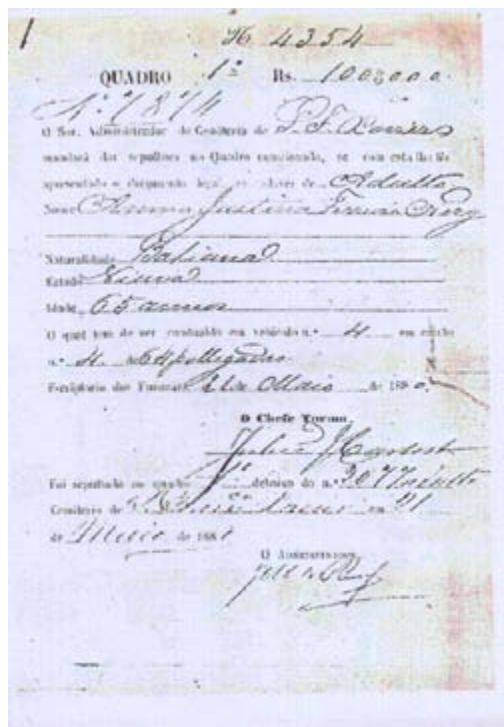 1
4354
QUADRO 1º Rs. 100$000
Nº 7874
O Snr. Administrador do Cemiterio de S. F. Xavier
mandará dar sepultura no Quadro mencionado, se com esta lhe fôr
apresentado o documento legal, ao cadaver de Adulto
Nome Anna Justina Ferreira Nery
Naturalidade Bahiana
Estado Viuva
Idade 65 annos
O qual tem de ser conduzido em vehiculo n.º 4 em caixão
n.º 4. de 64 pollegadas
Escriptorio das Funerarias 21 de Maio de 1880
O Chefe Turma
Julio J
Foi sepultado no quadro 1º debaixo do n.º 3077
Cemiterio de S. Francisco Xavier em 21
de Maio de 1880
O Administrador